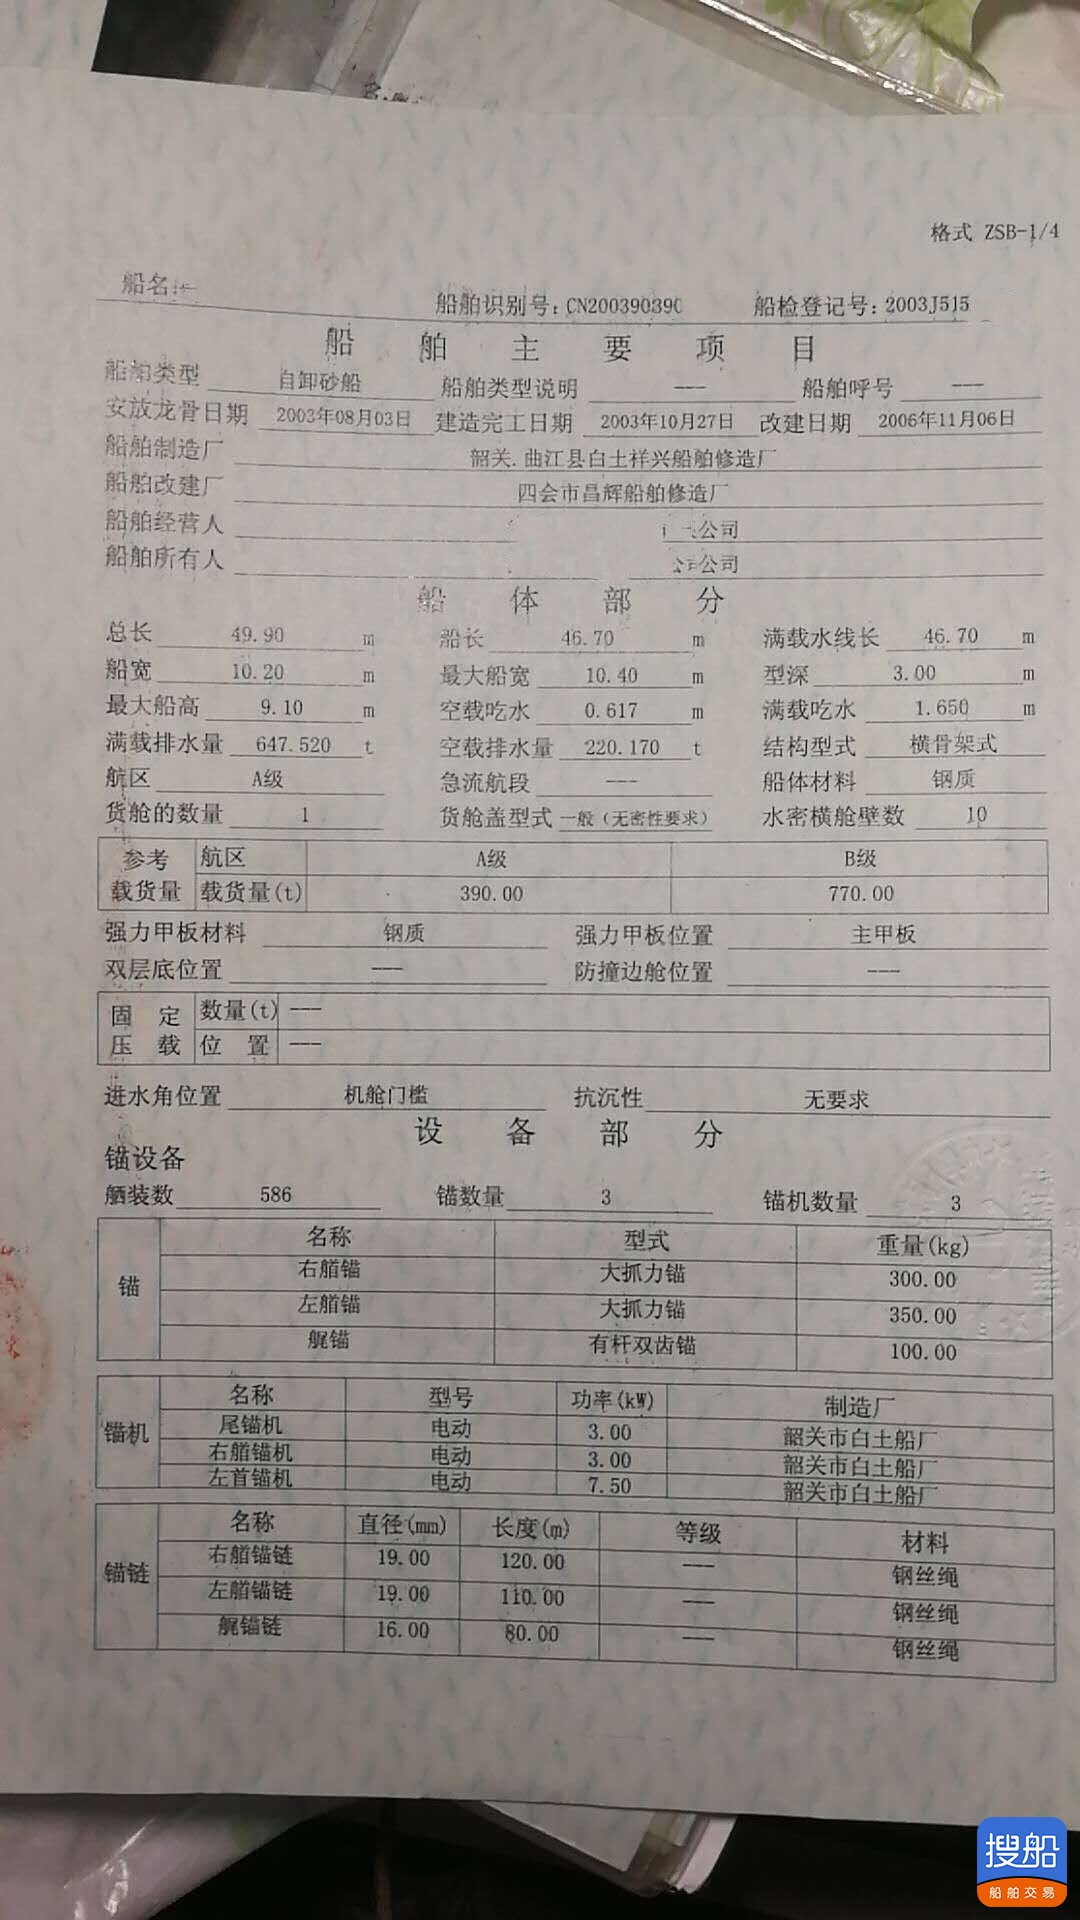 格式 ZSB-1/4
船名
船舶识别号:CN200390390 船检登记号:2003J515
船舶主要项目
船舶类型 自卸砂船 船舶类型说明 --- 船舶呼号 ---
安放龙骨日期 2003年08月03日 建造完工日期 2003年10月27日 改建日期 2006年11月06日
船舶制造厂 韶关.曲江县白土祥兴船舶修造厂
船舶改建厂 四会市昌辉船舶修造厂
船舶经营人 公司
船舶所有人 公司
船体部分
总长 49.90 m 船长 46.70 m 满载水线长 46.70 m
船宽 10.20 m 最大船宽 10.40 m 型深 3.00 m
最大船高 9.10 m 空载吃水 0.617 m 满载吃水 1.650 m
满载排水量 647.520 t 空载排水量 220.170 t 结构型式 横骨架式
航区 A级 急流航段 --- 船体材料 钢质
货舱的数量 1 货舱盖型式 一般(无密性要求) 水密横舱壁数 10
参考 航区 A级 B级
载货量 载货量(t) 390.00 770.00
强力甲板材料 钢质 强力甲板位置 主甲板
双层底位置 --- 防撞边舱位置 ---
固定 数量(t) ---
压载 位置 ---
进水角位置 机舱门槛 抗沉性 无要求
设备部分
锚设备
舾装数 586 锚数量 3 锚机数量 3
名称 型式 重量(kg)
锚 右艏锚 大抓力锚 300.00
左艏锚 大抓力锚 350.00
艉锚 有杆双齿锚 100.00
名称 型号 功率(kW) 制造厂
锚机 尾锚机 电动 3.00 韶关市白土船厂
右艏锚机 电动 3.00 韶关市白土船厂
左首锚机 电动 7.50 韶关市白土船厂
名称 直径(mm) 长度(m) 等级 材料
锚链 右艏锚链 19.00 120.00 --- 钢丝绳
左艏锚链 19.00 110.00 --- 钢丝绳
艉锚链 16.00 80.00 --- 钢丝绳
搜船
船舶交易